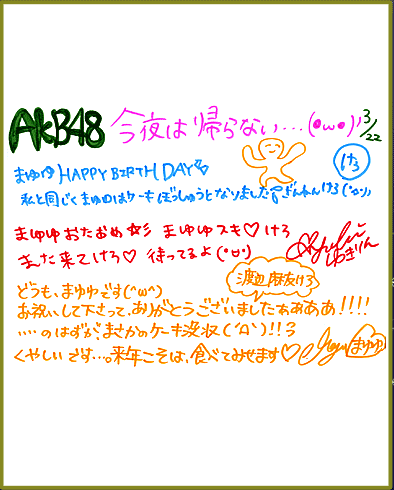 AKB48 今夜は帰らない…(●ω●) 3/22
まゆゆ HAPPY BIRTHDAY
けろ
私と同じくまゆゆはケーキぼっしゅうとなりました ざんねんけろ
まゆゆおたおめ☆彡 まゆゆスキ♡けろ
また来てけろ♡ 待ってるよ(・ω・)
ゆきりん
渡辺麻友けろ
どうも、まゆゆです(^ω^)
お祝いして下さって、ありがとうございましたぁぁぁぁ!!!!
…のはずが、まさかのケーキ没収(´Д`)!!
くやしいです…。来年こそは、食べてみせます♡
まゆゆ